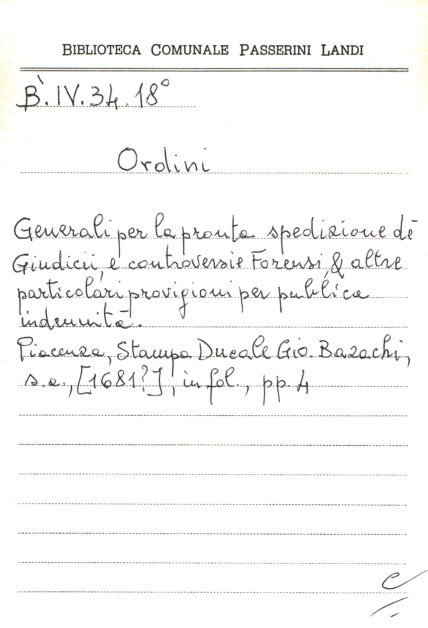 BIBLIOTECA COMUNALE PASSERINI LANDI
B̀.IV.34.18°
Ordini
Generali per la pronta spedizione dè
Giudicii, e controversie Forensi, & altre
particolari provigioni per publica
indennità.
Piacenza, Stampa Ducale Gio. Bazachi,
s.a., [1681?], in fol., pp. 4